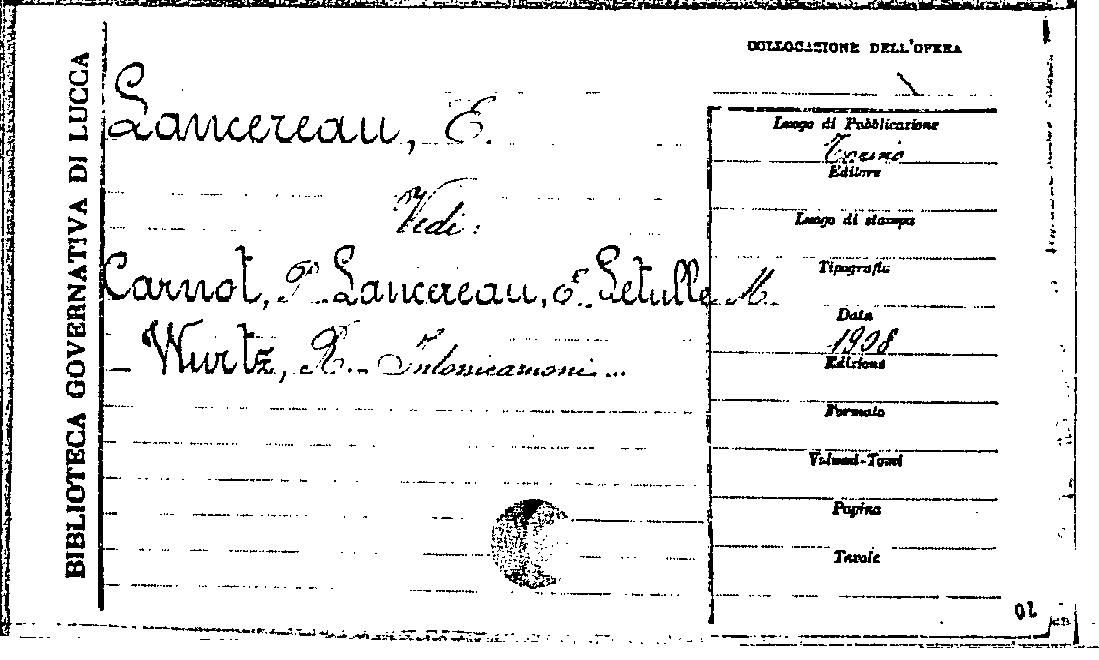 BIBLIOTECA GOVERNATIVA DI LUCCA
COLLOCAZIONE DELL'OPERA
Lancereau, E.
Vedi:
Carnot, P. Lancereau, E. Letulle M.
- Wurtz, R. - Intossicazioni...
Luogo di Pubblicazione
Torino
Editore
Luogo di stampa
Tipografia
Data
1908
Edizione
Formato
Volumi-Tomi
Pagina
Tavole
02